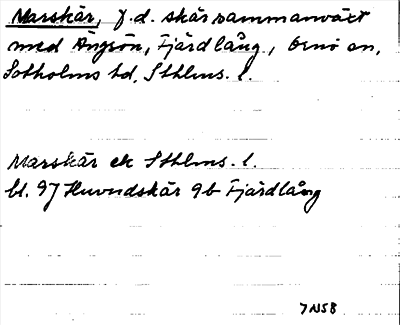 Marskär, f.d. skär sammanväxt
med Ängsön, Fjärdlång, Ornö sn,
Sotholms hd, Sthlms. l.
Marskär ek Sthlms. l.
bl. 97 Huvudskär 9b Fjärdlång
7NSB